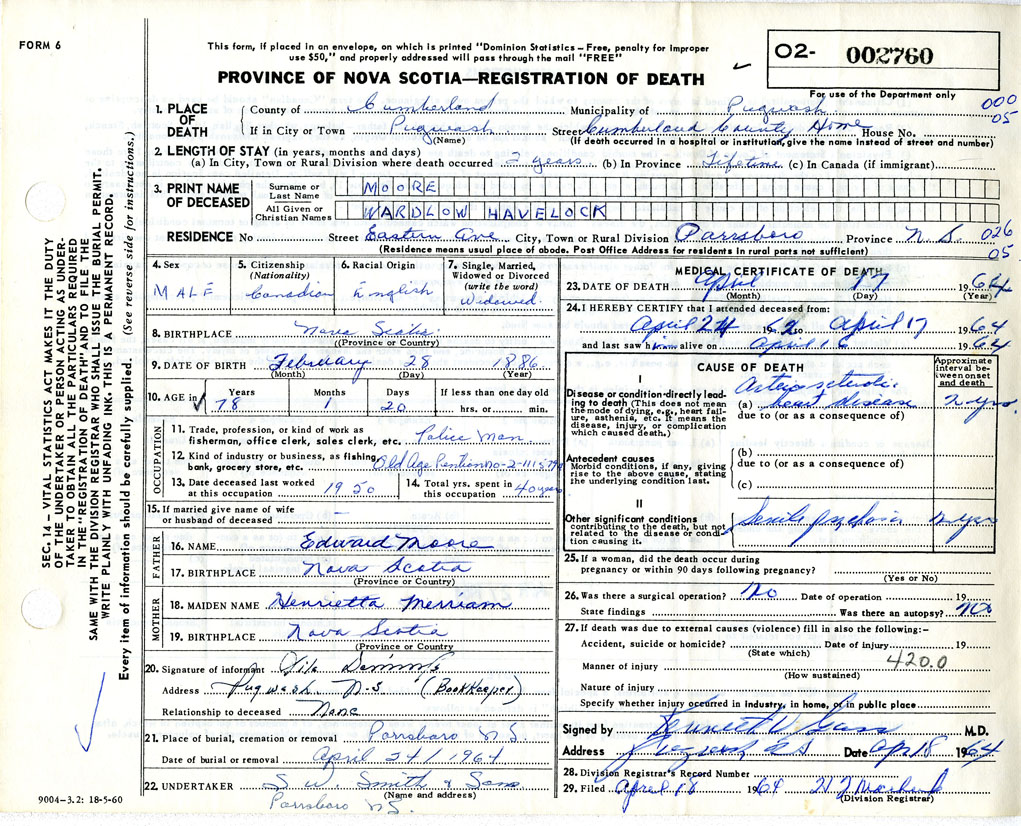 FORM 6
This form, if placed in an envelope, on which is printed "Dominion Statistics – Free, penalty for improper
use $50," and properly addressed will pass through the mail "FREE"
PROVINCE OF NOVA SCOTIA—REGISTRATION OF DEATH
02- 002760
For use of the Department only
000
05
1. PLACE OF DEATH
County of Cumberland Municipality of Pugwash
If in City or Town Pugwash Street Cumberland County Home House No.
(Name) (If death occurred in a hospital or institution, give the name instead of street and number)
2. LENGTH OF STAY (in years, months and days)
(a) In City, Town or Rural Division where death occurred 2 years (b) In Province Lifetime (c) In Canada (if immigrant)
3. PRINT NAME OF DECEASED
Surname or Last Name MOORE
All Given or Christian Names WARDLOW HAVELOCK
RESIDENCE No Street Eastern Ave City, Town or Rural Division Parrsboro Province N.S. 026
05
(Residence means usual place of abode. Post Office Address for residents in rural parts not sufficient)
4. Sex
MALE
5. Citizenship
(Nationality)
Canadian
6. Racial Origin
English
7. Single, Married,
Widowed or Divorced
(write the word)
Widowed
8. BIRTHPLACE Nova Scotia
(Province or Country)
9. DATE OF BIRTH February 28 1886
(Month) (Day) (Year)
10. AGE in Years Months Days If less than one day old
78 1 20 hrs. or min.
OCCUPATION
11. Trade, profession, or kind of work as
fisherman, office clerk, sales clerk, etc. Police Man
12. Kind of industry or business, as fishing,
bank, grocery store, etc. Old Age Pention no-2-
13. Date deceased last worked
at this occupation 1950
14. Total yrs. spent in
this occupation 40 years
15. If married give name of wife
or husband of deceased –
FATHER
16. NAME Edward Moore
17. BIRTHPLACE Nova Scotia
(Province or Country)
MOTHER
18. MAIDEN NAME Henrietta Merriam
19. BIRTHPLACE Nova Scotia
(Province or Country
20. Signature of informant
Address Pugwash N.S (BookKeeper)
Relationship to deceased None
21. Place of burial, cremation or removal Parrsboro N.S.
Date of burial or removal April 1964
22. UNDERTAKER S W. Smith & Sons
(Name and address)
Parrsboro N.S.
9004–3.2: 18-5-60
MEDICAL CERTIFICATE OF DEATH
23. DATE OF DEATH April 17 1964
(Month) (Day) (Year)
24. I HEREBY CERTIFY that I attended deceased from:
April 24 1962 to April 17 1964
and last saw him alive on April 16 1964
CAUSE OF DEATH
Approximate
interval be-
tween onset
and death
I
Disease or condition directly lead-
ing to death (This does not mean
the mode of dying, e.g., heart fail-
ure, asthenia, etc. It means the
disease, injury, or complication
which caused death.)
Arteriosclerotic
(a) heart disease
due to (or as a consequence of)
Antecedent causes
Morbid conditions, if any, giving
rise to the above cause, stating
the underlying condition last.
(b)
due to (or as a consequence of)
(c)
II
Other significant conditions
contributing to the death, but not
related to the disease or condi-
tion causing it.
Senile psychosis
25. If a woman, did the death occur during
pregnancy or within 90 days following pregnancy?
(Yes or No)
26. Was there a surgical operation? No Date of operation 19
State findings Was there an autopsy? No
27. If death was due to external causes (violence) fill in also the following:–
Accident, suicide or homicide? Date of injury 19
(State which)
420.0
Manner of injury
(How sustained)
Nature of injury
Specify whether injury occurred in industry, in home, or in public place
Signed by M.D.
Address Date Apr 18 1964
28. Division Registrar's Record Number
29. Filed April 18 1964
(Division Registrar)
SEC. 14 – VITAL STATISTICS ACT MAKES IT THE DUTY
OF THE UNDERTAKER OR PERSON ACTING AS UNDER-
TAKER TO OBTAIN ALL THE PARTICULARS REQUIRED
IN THE "REGISTRATION OF DEATH" AND TO FILE THE
SAME WITH THE DIVISION REGISTRAR WHO SHALL ISSUE THE BURIAL PERMIT.
WRITE PLAINLY WITH UNFADING INK. THIS IS A PERMANENT RECORD.
Every item of information should be carefully supplied. (See reverse side for instructions.)